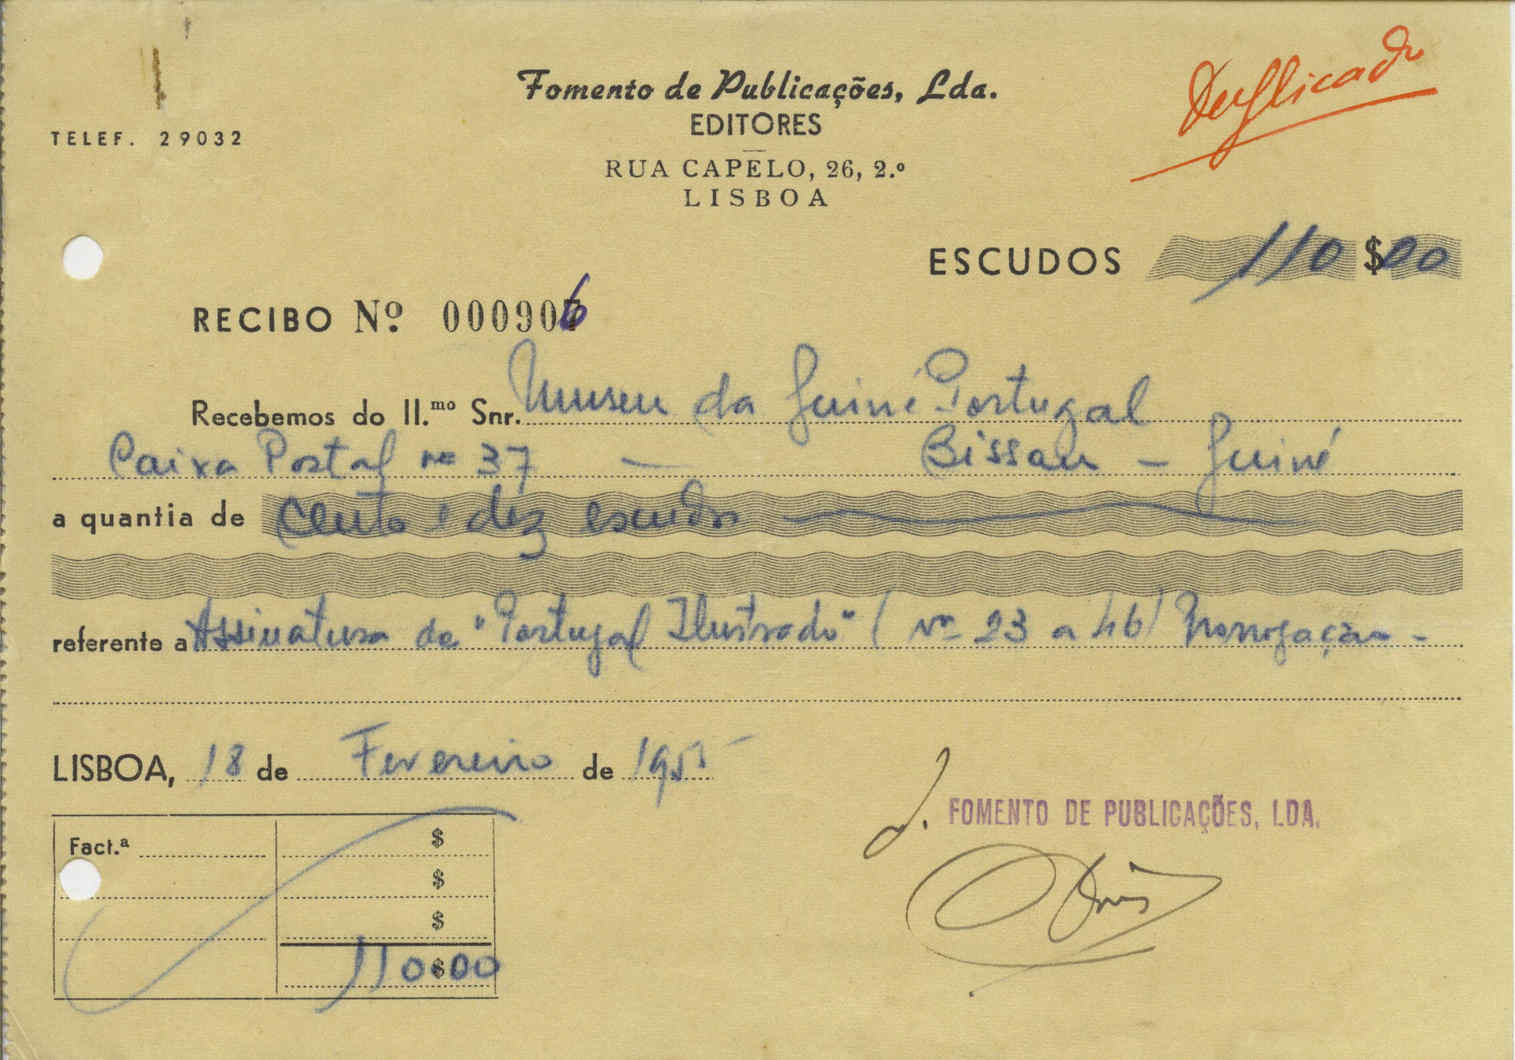 Duplicado
Fomento de Publicações, Lda.
EDITORES
TELEF. 29032
RUA CAPELO, 26, 2.º
LISBOA
ESCUDOS 110$00
RECIBO Nº 000906
Recebemos do Il.mo Snr. Museu da Guiné Portugal
Caixa Postal nº 37 — Bissau — Guiné
a quantia de Cento e dez escudos
referente a Assinatura de "Portugal Ilustrado" (nº 23 a 46)
LISBOA, 18 de Fevereiro de 1955
Fact.ª $
$
$
110$00
FOMENTO DE PUBLICAÇÕES, LDA.